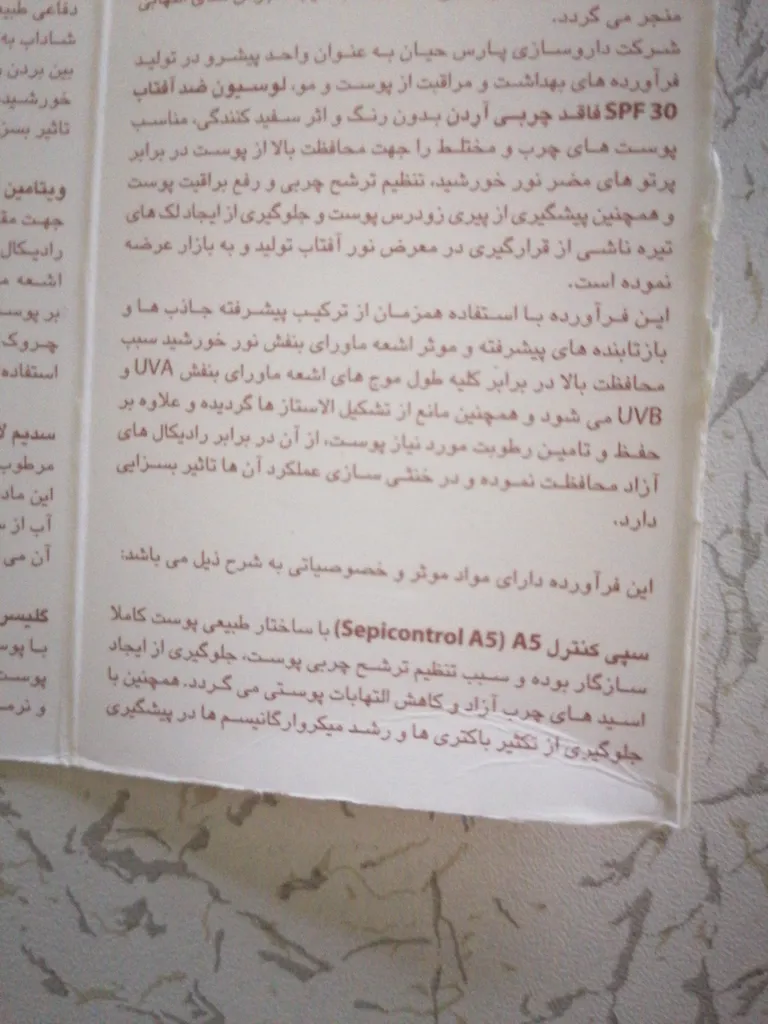 منجر می گردد.
شرکت داروسازی پارس حیان به عنوان واحد پیشرو در تولید
فرآورده های بهداشت و مراقبت از پوست و مو، لوسیون ضد آفتاب
SPF 30 فاقد چربی آردن بدون رنگ و اثر سفید کنندگی، مناسب
پوست های چرب و مختلط را جهت محافظت بالا از پوست در برابر
پرتو های مضر نور خورشید، تنظیم ترشح چربی و رفع براقیت پوست
و همچنین پیشگیری از پیری زودرس پوست و جلوگیری از ایجاد لک های
تیره ناشی از قرارگیری در معرض نور آفتاب تولید و به بازار عرضه
نموده است.
این فرآورده با استفاده همزمان از ترکیب پیشرفته جاذب ها و
بازتابنده های پیشرفته و موثر اشعه ماورای بنفش نور خورشید سبب
محافظت بالا در برابر کلیه طول موج های اشعه ماورای بنفش UVA و
UVB می شود و همچنین مانع از تشکیل الاستاز ها گردیده و علاوه بر
حفظ و تامین رطوبت مورد نیاز پوست، از آن در برابر رادیکال های
آزاد محافظت نموده و در خنثی سازی عملکرد آن ها تاثیر بسزایی
دارد.
این فرآورده دارای مواد موثر و خصوصیاتی به شرح ذیل می باشد:
سپی کنترل A5 (Sepicontrol A5) با ساختار طبیعی پوست کاملا
سازگار بوده و سبب تنظیم ترشح چربی پوست، جلوگیری از ایجاد
اسید های چرب آزاد و کاهش التهابات پوستی می گردد. همچنین با
جلوگیری از تکثیر باکتری ها و رشد میکروارگانیسم ها در پیشگیری
شاداب به
بین بردن
خورشید
ویتامین
رادیکال
اشعه
چروک
استفاده
سدیم
مرطوب
این ماد
آب از
آن می
گلیسر
با پو
پوست
و نرم